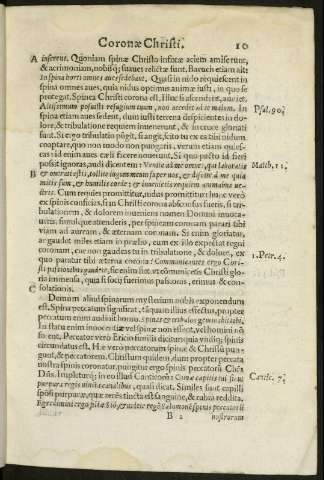 Coronæ Christi. 10
A inserent. Quoniam spinæ Christo infixæ aciem amiserunt,
& acrimoniam, nobisq; suaues relictæ sunt. Baruch etiam ait:
In spina horti omnes aues sedebant. Quasi in nido requiescent in
spina omnes aues, quia nidus optimus animæ iusti, in quo se
protegit, Spinea Christi corona est. Huc si ascenderit, audiet,
Altissimum posuisti refugium tuum, non accedet ad te malum. In
Psal. 90.
spina etiam aues sedent, dum iusti terrena despicientes in do-
lore, & tribulatione requiem inueniunt, &
pugit, si angit, sito tu ex ea tibi nidum
coaptare, quo non modo non pungaris, verum etiam quies-
cas
possit ignoras, audi dicentem: Venite ad me omnes, qui laboratis
Matth. 11.
B & onerati estis, tollite iugum meum super vos, & discite à me quia
mitis sum, & humilis corde; & inuenietis requiem animabus ve-
stris. Cum requies promittitur, nidus promittitur: hunc verò
ex spinis conficies, si in Christi corona absconsus fueris, si tri-
bulationem, & dolorem inueniens nomen Domini inuoca-
ueris, simulque attenderis, per spineam coronam parari tibi
viam ad auream, & æternam coronam. Si enim gloriatur,
ac gaudet miles etiam in prælio, cum ex illo expectat regni
coronam, cur non gaudeas tu in tribulatione, & dolore, ex
quo paratur tibi æterna corona? Communicantes ergo Chri-
1. Petr. 4.
sti passionibus gaudete, sic enim fiet, vt communicetis Christi glo-
ria immensa, qua si socij fuerimus passionis, erimus & con-
C solationis.
Demum aliud spinarum mysterium nobis exponendum
est. Spina peccatum significat,
peccatum enim audiuit homo. Spinas & tribulos germinabit tibi.
In statu enim innocentiæ vel spinæ non essent, vel homini nõ
Peccator verò Ericio similis dicitur, quia vndiq; spinis
circundatus est. Hæ verò peccatorum spinæ & Christũ pun-
gunt, & peccatorem. Christum quidem, dum propter peccata
nostra spinis coronatur, pungitur ergo spinis peccatoris Chr.
Dñs. Impleturq; in eo illius Canticorũ: Comæ capitis tui sicut
Cantic. 7.
purpura regis vincta canalibus, quasi dicat. Similes sunt capilli
spõsi purpuræ, quæ teres tincta est sanguine, & rubra reddita.
Egredimini ergo filiæ Siõ, & videte regẽ Salomonẽ spinis peccatorũ
B 2 nostrorum